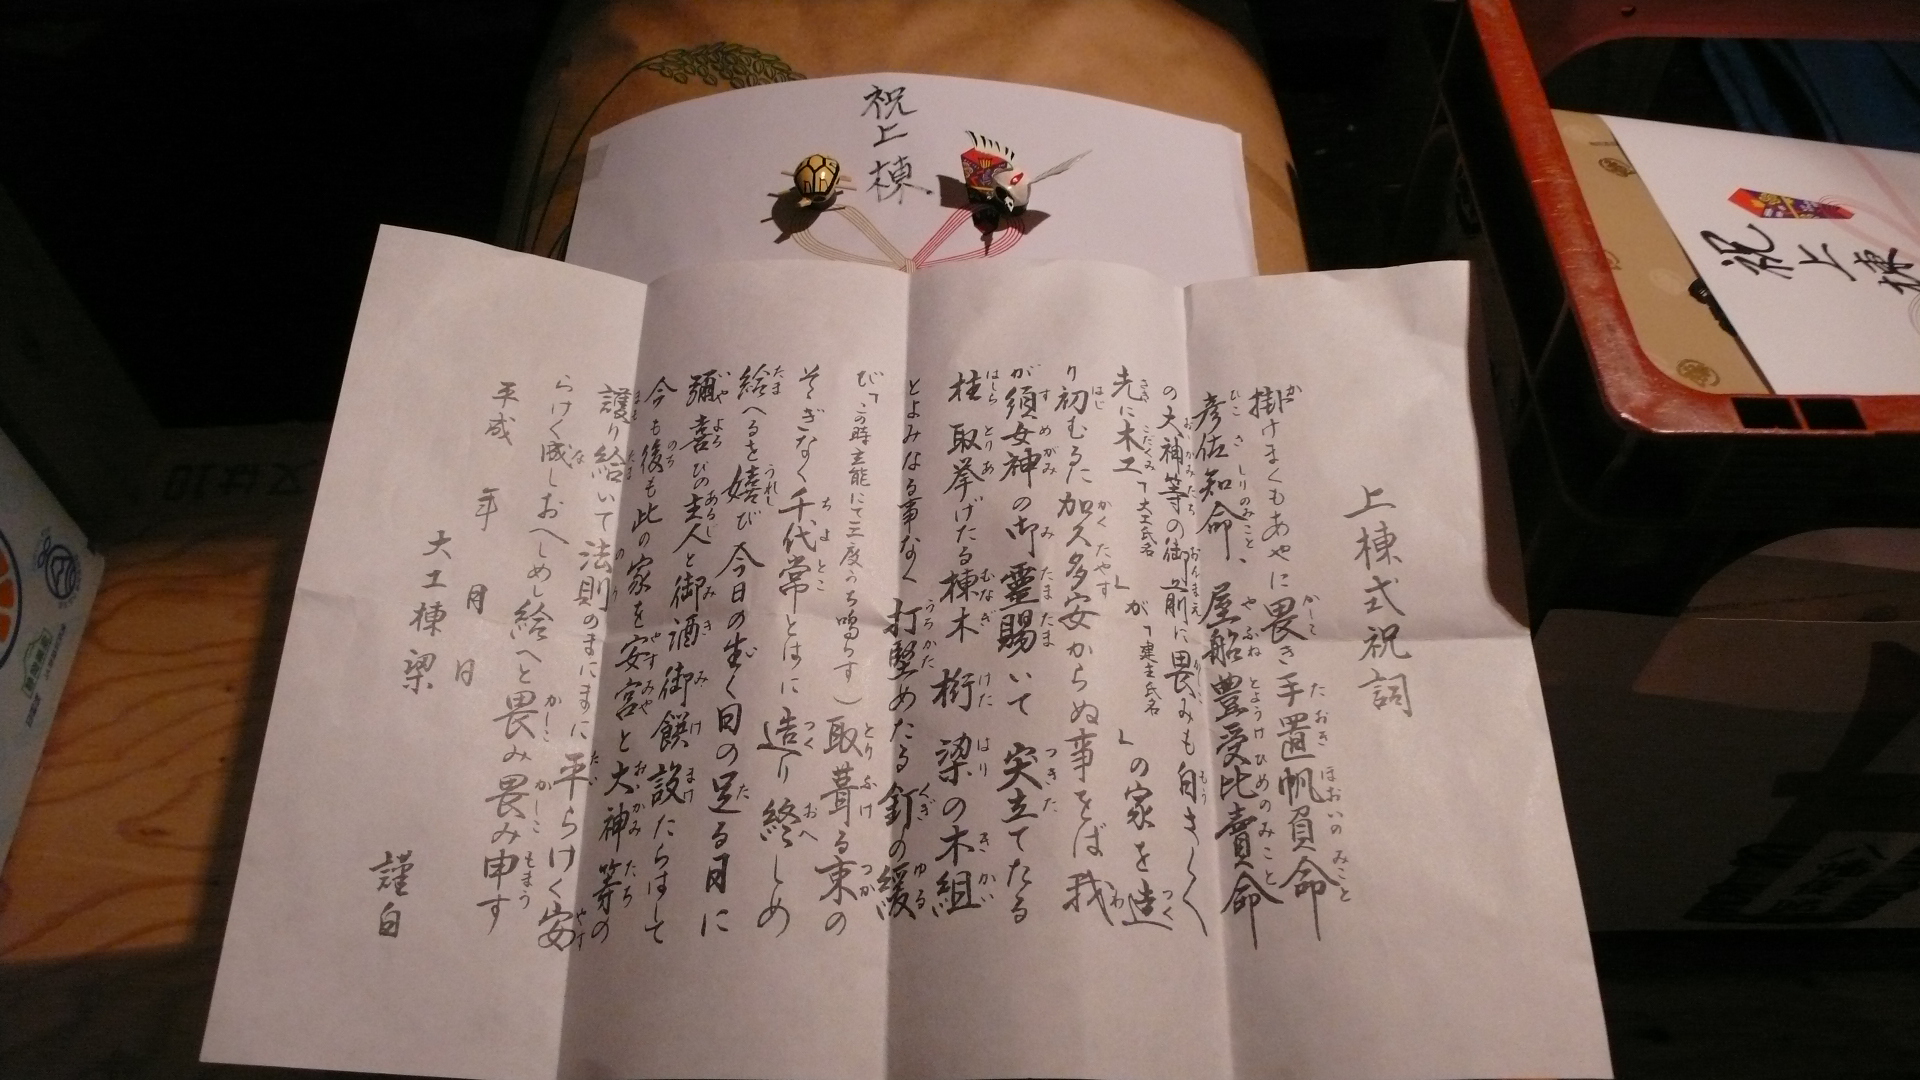 祝上棟
祝上棟
上棟式祝詞
掛けまくもあやに畏き手置帆負命
彦佐知命、屋船豊受比賣命
の大神等の御前に畏みも白さく
先に木工「大工氏名」が「建主氏名」の家を造
り初むるに加久多安からぬ事をば我
が須女神の御靈賜いて突立てたる
柱取挙げたる棟木桁梁の木組
とよみなる事なく打堅めたる釘の緩
び「この時主能にて三度うち鳴らす)取葺る束の
そゝぎなく千代常とはに造り終しめ
給へるを嬉び今日の生く日の足る日に
彌喜びの主人と御酒御饌設たらはして
今も後も此の家を安宮と大神等の
護り給いて法則のまにまに平らけく安
らけく成しおへしめ給へと畏み畏み申す
平成 年 月 日
大工棟梁
謹白